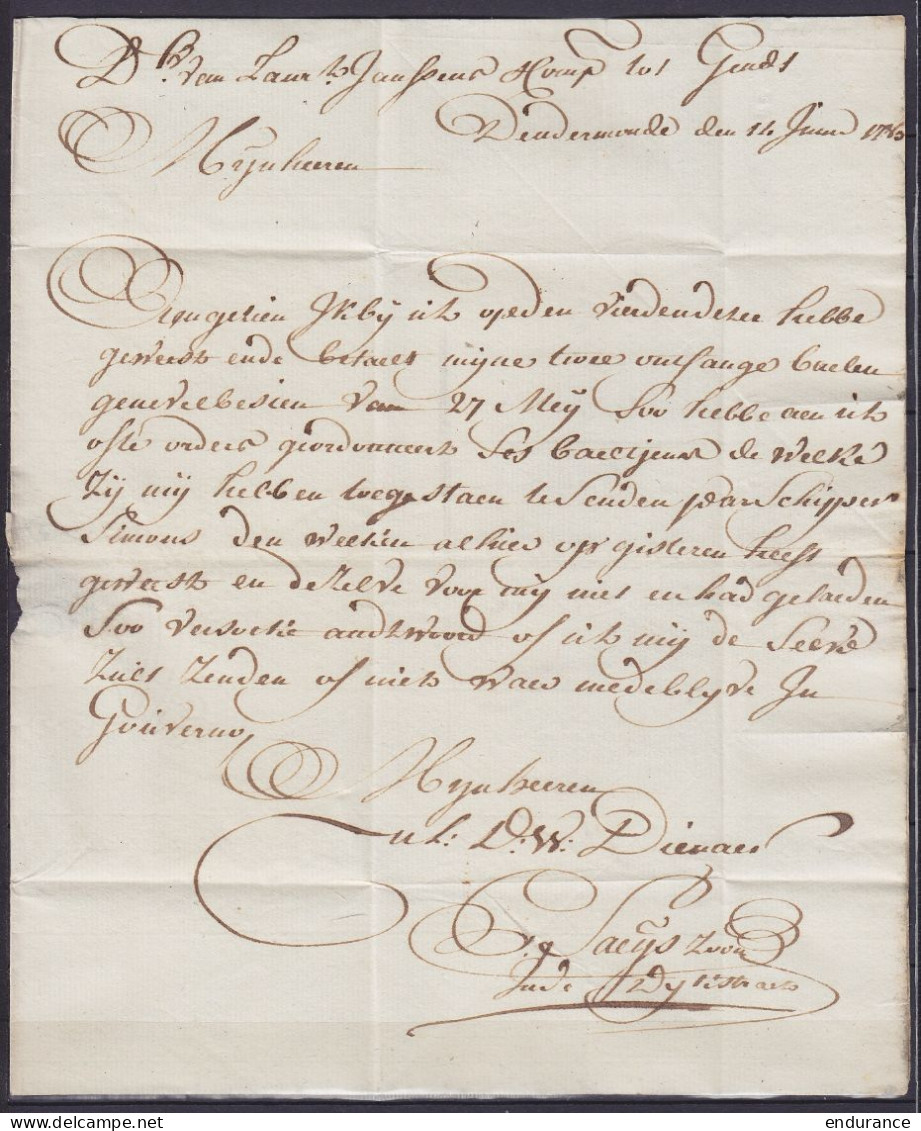 van Laur.s Janssens Comp tot Gendt
Dendermonde den 14 Junii
Mijnheeren
Aengesien Ik bij ul. op den vierden deser hebbe
geweest ende betaelt mijne twee ontfange baelen
genevelbesien van 27 Meij Soo hebbe aen ul.
ofte orders geordonneert Ses baeltjens de welke
Zij mij hebben toegestaen te Senden par Schipper
Simons den welken alhier op gisteren heeft
geweest en dezelve voor mij niet en had gelaeden
Soo versoeke andtwoord of ul. mij de Selve
Zult Zenden of niet waer mede blijve In
Gouverno
Mijnheeren
ul. D: W: Dienaer
Saeys Zoon
Inde Dijkstraet
endurance